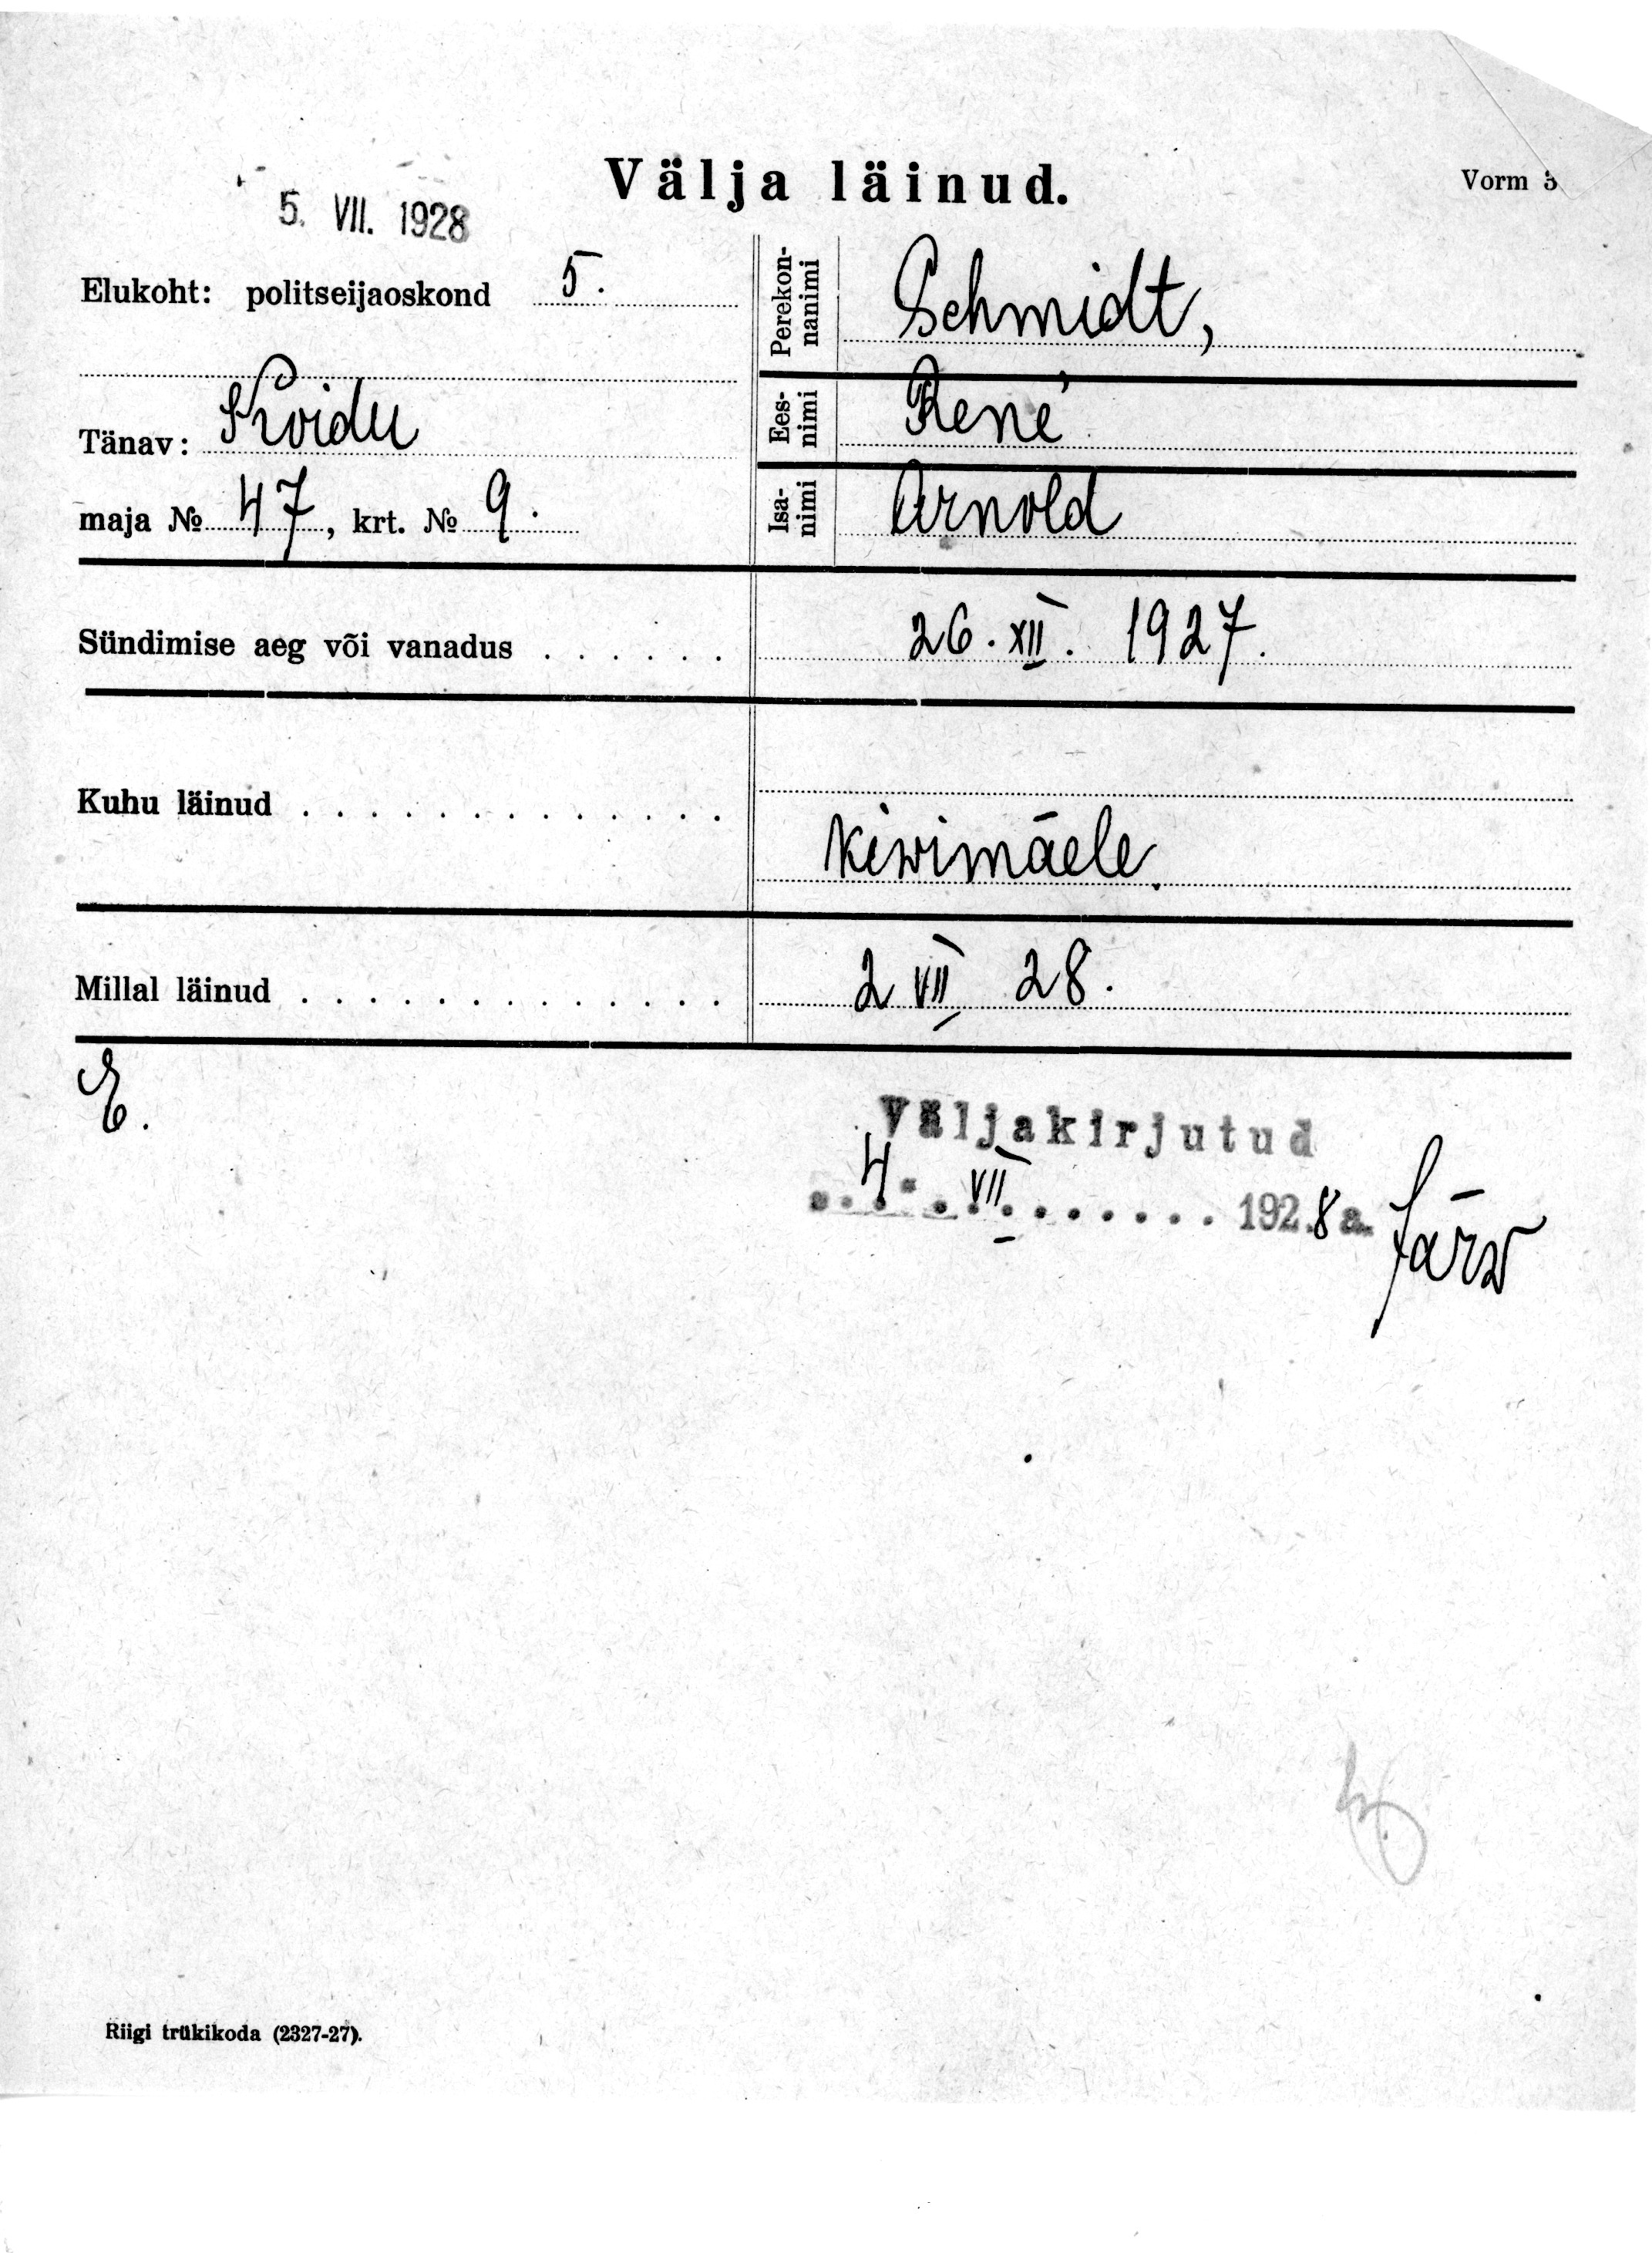 Välja läinud.
Vorm
5. VII. 1928
Elukoht: politseijaoskond 5.
Tänav: Koidu
maja № 47, krt. № 9.
Perekon-
nanimi
Schmidt,
Ees-
nimi
René
Isa-
nimi
Arnold
Sündimise aeg või vanadus . . . . . . 26. XII. 1927.
Kuhu läinud . . . . . . . . . . . . .
Kiwimäele.
Millal läinud . . . . . . . . . . . . . 2 VII 28.
E.
Väljakirjutud
4. VII. 1928 a. Järw
Riigi trükikoda (2327-27).